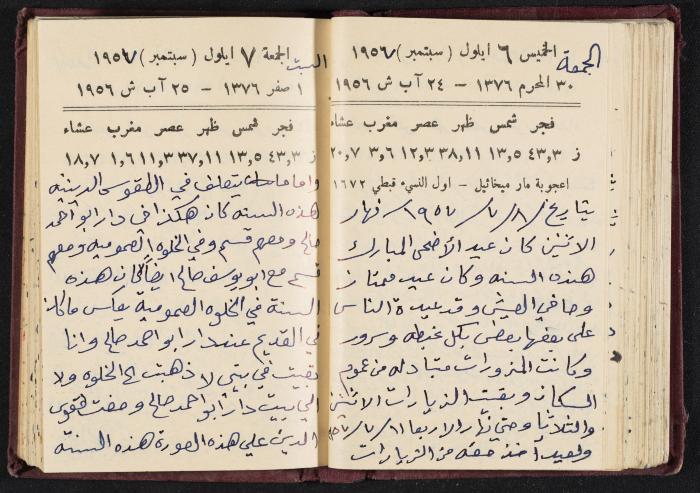 الجمعة
الخميس ٦ ايلول (سبتمبر) ١٩٥٧
٣٠ المحرم ١٣٧٦ – ٢٤ آب ش ١٩٥٦
فجر شمس ظهر عصر مغرب عشاء
ز ٤٣,٣ ١٣,٥ ٣٨,١١ ١٢,٣ ٣,٦ ٢٠,٧
اعجوبة مار ميخائيل – اول النسيء قبطي ١٦٧٢
بتاريخ ٨/٧/١٩٥٧ نهار
الاثنين كان عيد الأضحى المبارك
هذه السنه وكان عيد ممتاز
وصافي العيش وقد عيدة الناس
على بعضها بعض بكل غبطه وسرور
وكانت المزورات متبادله من عموم
السكان وبقيت الزيارات الاثنين
والثلاثا وحتى نهار الاربعا ١٠/٧/٥٧
من الزيارات
السبت
الجمعة ٧ ايلول (سبتمبر) ١٩٥٧
١ صفر ١٣٧٦ – ٢٥ آب ش ١٩٥٦
فجر شمس ظهر عصر مغرب عشاء
ز ٤٣,٣ ١٣,٥ ٣٧,١١ ١١,٣ ١,٦ ١٨,٧
واما ما يتعلف في الطقوس الدينيه
هذه السنه كان هكذا في دار ابو احمد
صالح ومعهم قسم وفي الخلوه العموميه ومعهم
قسم مع ابو يوسف صالح ايضاً كان هذه
السنة في الخلوه العموميه بعكس ما كان
في القديم عند دار ابو احمد صالح وانا
بقيت في بيتي لا ذهبت الى الخلوه ولا
الى بيت دار ابو احمد صالح ومضت
الدين على هذه الصورة هذه السنه